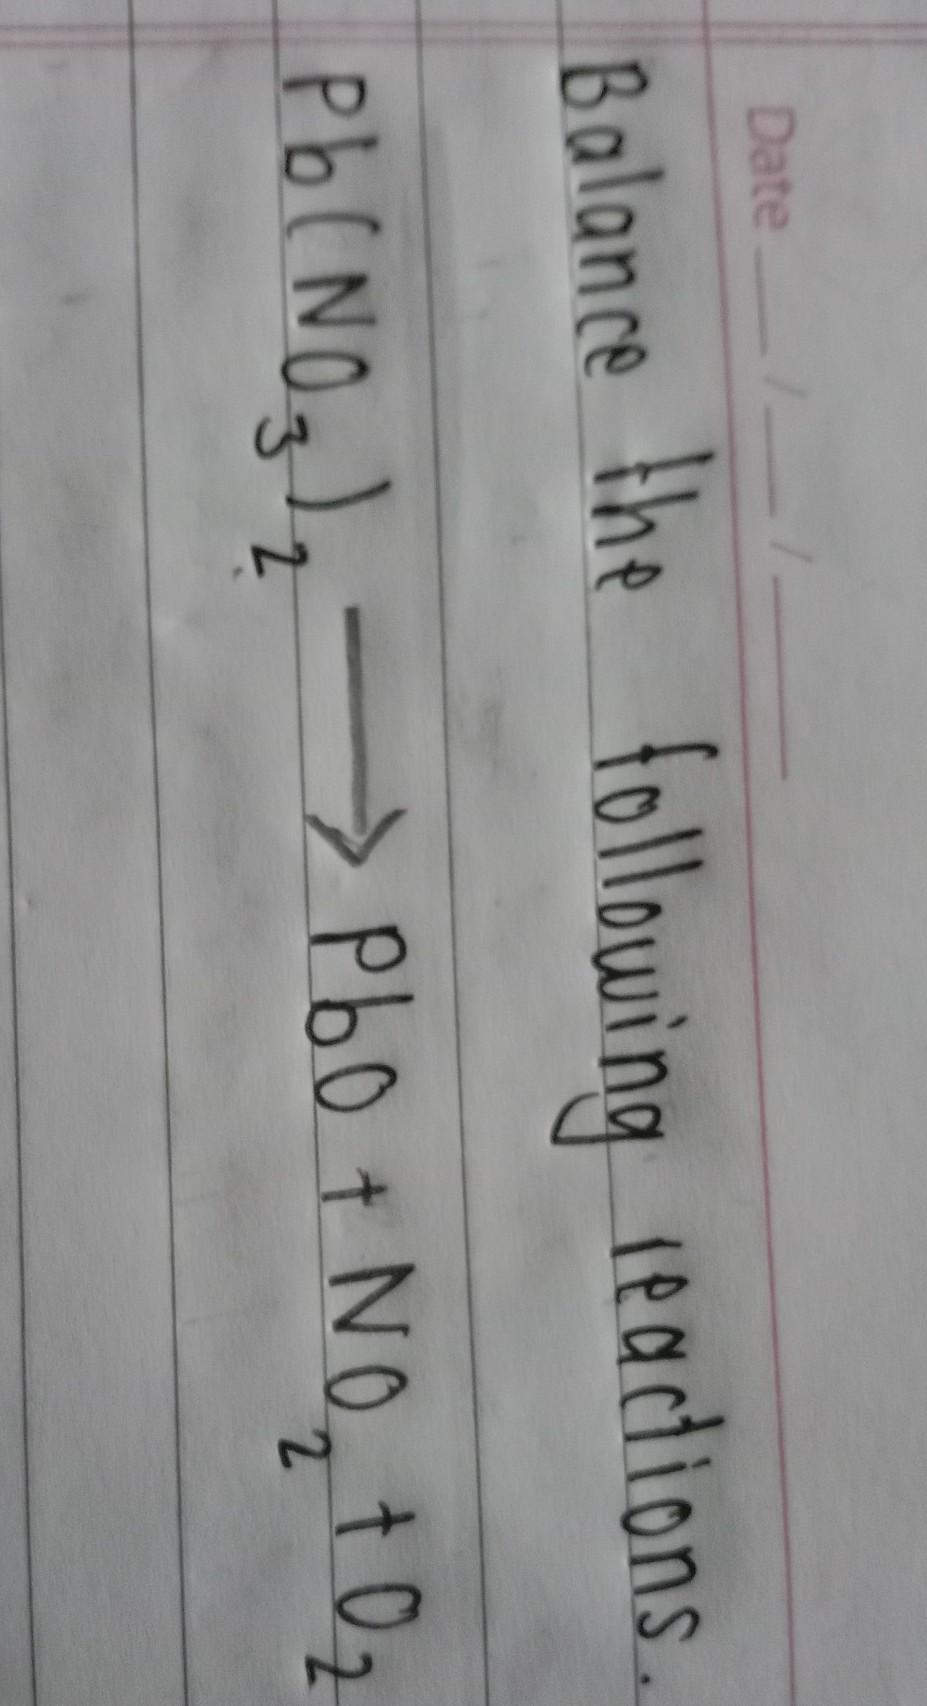 Date __/__/____
Balance the following reactions.
Pb(NO₃)₂ ⟶ PbO + NO₂ + O₂